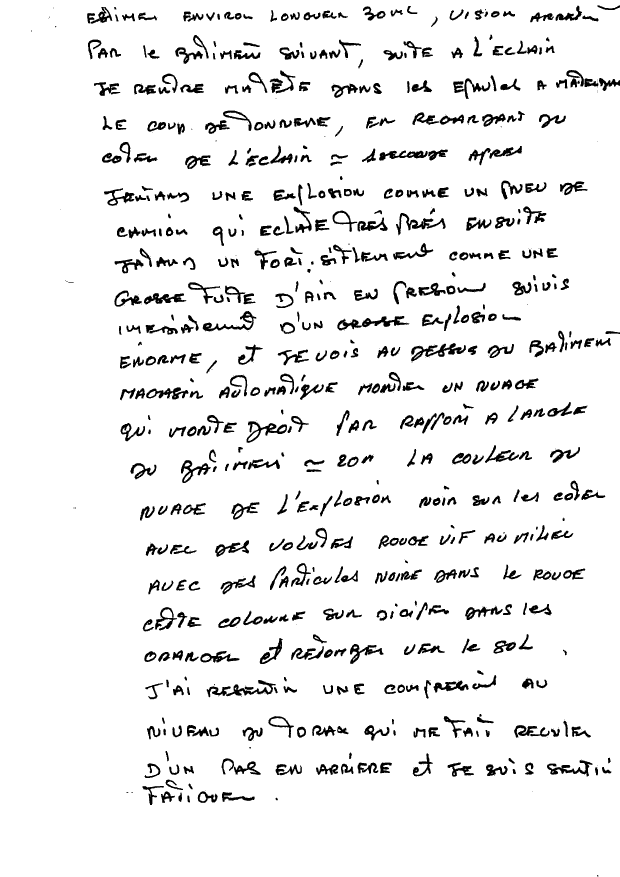 ESTIMER ENVIRON LONGUEUR 30ML, VISION ARRETE
PAR le BATIMENT SUIVANT, SUITE A L'ECLAIR
JE RENTRE MA TETE DANS les EPAULES A
LE COUP DE TONNERE, EN REGARDANT DU
COTER DE L'ECLAIR ≃ 1 SECONDE APRES
J'ENTAND UNE EXPLOSION COMME UN PNEU DE
CAMION QUI ECLATE TRES PRES ENSUITE
UN FORT SIFLEMENT COMME UNE
GROSSE FUITE D'AIR EN PRESION SUIVIS
IMEDIATEMENT D'UN GROSSE EXPLOSION
ENORME, et JE VOIS AU DESSUS DU BATIMENT
MAGASIN AUTOMATIQUE MONTER UN NUAGE
QUI MONTE DROIT PAR RAPPORT A L'ANGLE
DU BATIMENT ≃ 20M LA COULEUR DU
NUAGE DE L'EXPLOSION NOIR SUR les COTER
AVEC DES VOLUTES ROUGE VIF AU MILIEU
AVEC DES PARTICULES NOIRE DANS le ROUGE
CETTE COLONNE SUR DICIPER DANS les
ORANGER et RETOMBER VER le SOL.
J'AI RESENTIR UNE COMPRESION AU
NIVEAU DU TORAX QUI ME FAIT RECULER
D'UN PAS EN ARRIERE et JE SUIS SENTIR
FATIGUER.